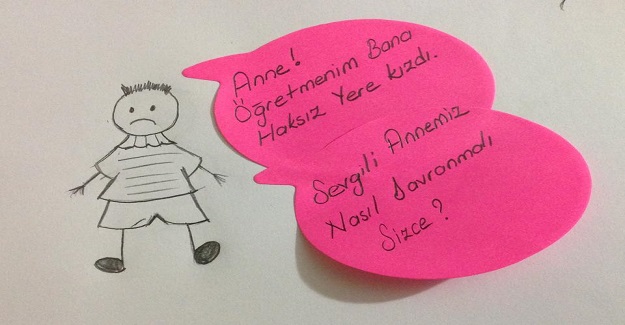 Anne!
Öğretmenim Bana
Haksız Yere kızdı.
Sevgili Annemiz
Nasıl Davranmalı
Sizce?